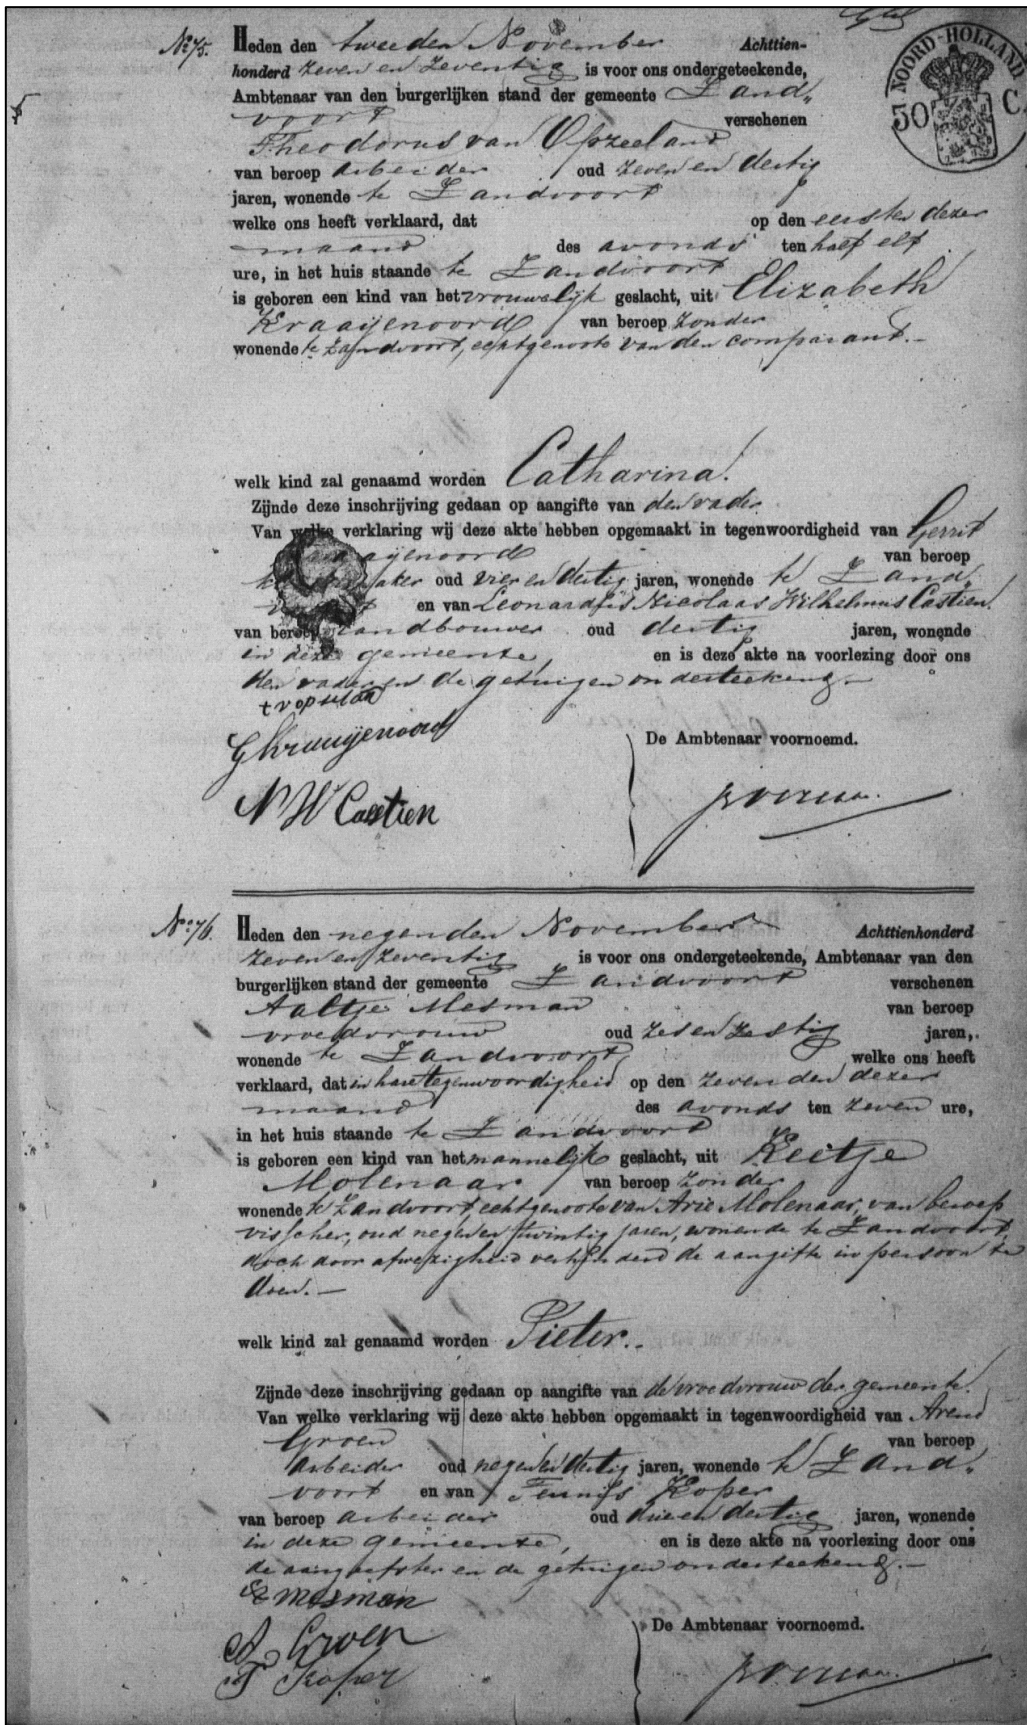 NOORD-HOLLAND
50 C.
No 75.
Heden den tweeden November Achttien-
honderd zeven en zeventig is voor ons ondergeteekende,
Ambtenaar van den burgerlijken stand der gemeente Zand„
voort verschenen
Theodorus van Opzeeland
van beroep arbeider oud zeven en dertig
jaren, wonende te Zandvoort
welke ons heeft verklaard, dat op den eersten dezer
maand des avonds ten half elf
ure, in het huis staande te Zandvoort
is geboren een kind van het vrouwelijk geslacht, uit Elizabeth
Kraaijenoord van beroep zonder
wonende te Zandvoort, echtgenoote van den comparant.-
welk kind zal genaamd worden Catharina.
Zijnde deze inschrijving gedaan op aangifte van den vader
Van welke verklaring wij deze akte hebben opgemaakt in tegenwoordigheid van Gerrit
Kraaijenoord van beroep
oud vier en dertig jaren, wonende te Zand„
voort en van Leonardus Nicolaas Wilhelmus Castien
van beroep landbouwer oud dertig jaren, wonende
in deze gemeente, en is deze akte na voorlezing door ons
den vader en de getuigen onderteekend.-
G Kraaijenoord
N W Castien
De Ambtenaar voornoemd.
No 76.
Heden den negenden November Achttienhonderd
zeven en zeventig is voor ons ondergeteekende, Ambtenaar van den
burgerlijken stand der gemeente Zandvoort verschenen
Aaltje Mesman van beroep
vroedvrouw oud zes en zestig jaren,
wonende te Zandvoort, welke ons heeft
verklaard, dat in hare tegenwoordigheid op den zevenden dezer
maand des avonds ten zeven ure,
in het huis staande te Zandvoort
is geboren een kind van het mannelijk geslacht, uit Keetje
Molenaar van beroep zonder
wonende te Zandvoort, echtgenoote van Arie Molenaar, van beroep
visscher, oud negen en twintig jaren, wonende te Zandvoort,
doch door afwezigheid verhinderd de aangifte in persoon te
doen.-
welk kind zal genaamd worden Pieter.
Zijnde deze inschrijving gedaan op aangifte van de vroedvrouw der gemeente.
Van welke verklaring wij deze akte hebben opgemaakt in tegenwoordigheid van Arend
Groen van beroep
arbeider oud negen en dertig jaren, wonende te Zand„
voort en van Teunis Koper
van beroep arbeider oud drie en dertig jaren, wonende
in deze gemeente, en is deze akte na voorlezing door ons
de aangeefster en de getuigen onderteekend.-
Mesman
A Groen
T Koper
De Ambtenaar voornoemd.